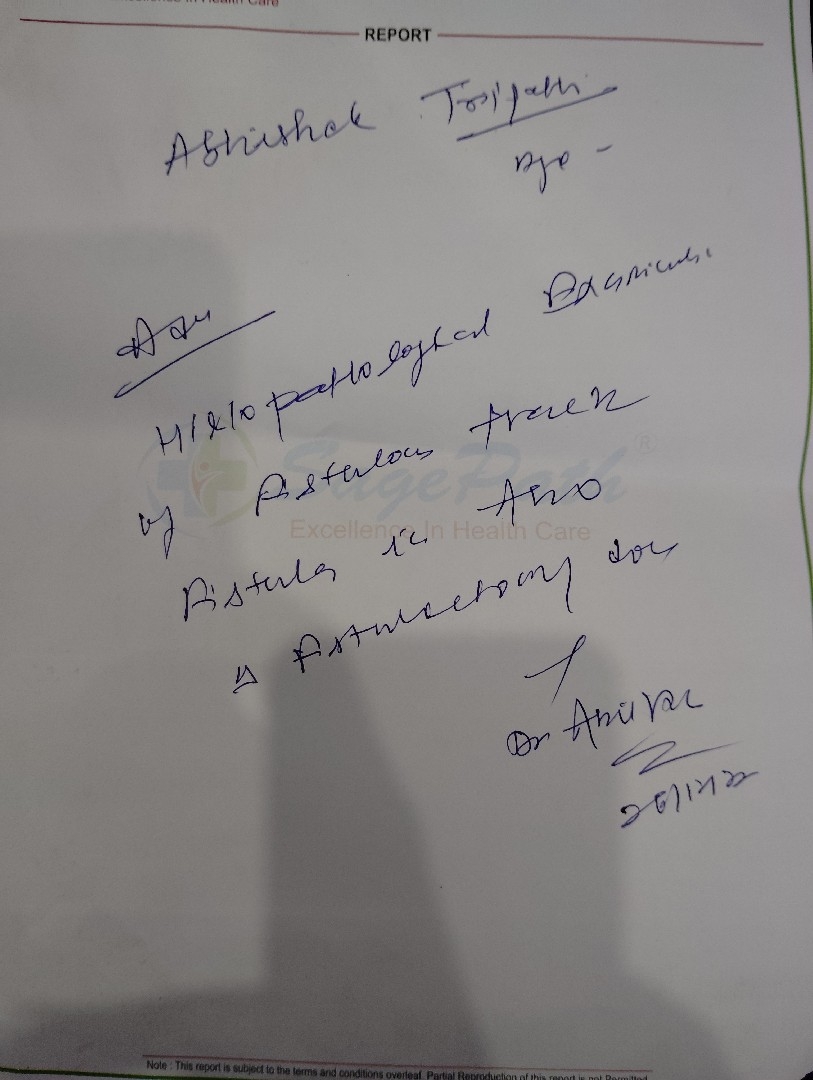 Excellence In Health Care
REPORT
Abhishek Tripathi
Age -
Adv
Histopathological Examination
of fistulous track
Fistula in Ano
fistulectomy done
SagePath®
Excellence In Health Care
Dr Anil
26/12/22
Note : This report is subject to the terms and conditions overleaf. Partial Reproduction of this report is not Permitted